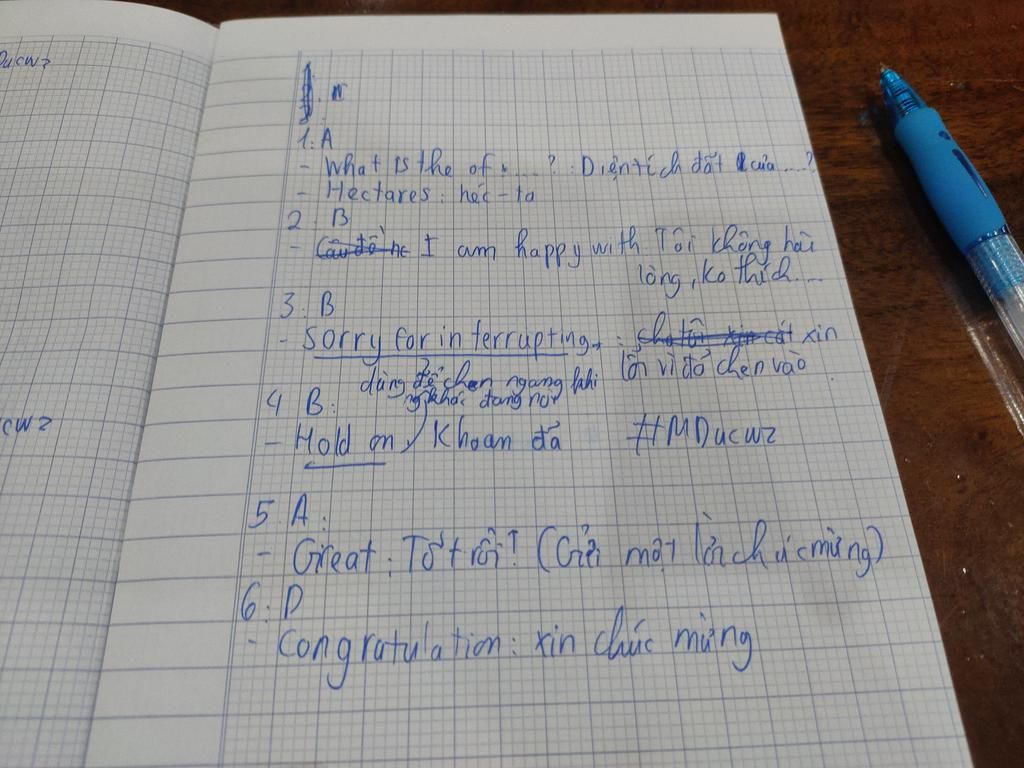 Ducw2
cw2
1. A
- What is the of .....? : Diện tích đất của ....?
- Hectares : héc-ta
2. B
- I am happy with Tôi không hài
lòng, ko thích....
3. B
- Sorry for interrupting : xin
lỗi vì đã chen vào
dùng để chen ngang khi
ng khác đang nói
4 B:
- Hold on / Khoan đã #MDucw2
5 A:
- Great : Tốt rồi! (Gửi một lời chúc mừng)
6. D
- Congratulation : xin chúc mừng